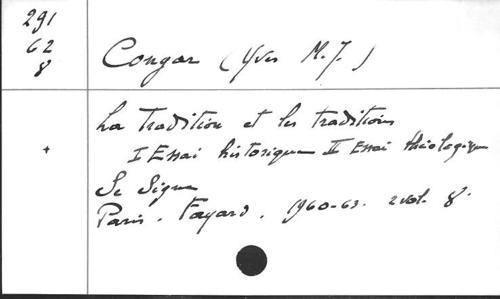 291
62
8
Congar (Yves M.J.)
+
La Tradition et les traditions
I Essai historique II Essai théologique
Le Signe
Paris. Fayard. 1960-63. 2 vol. 8°.